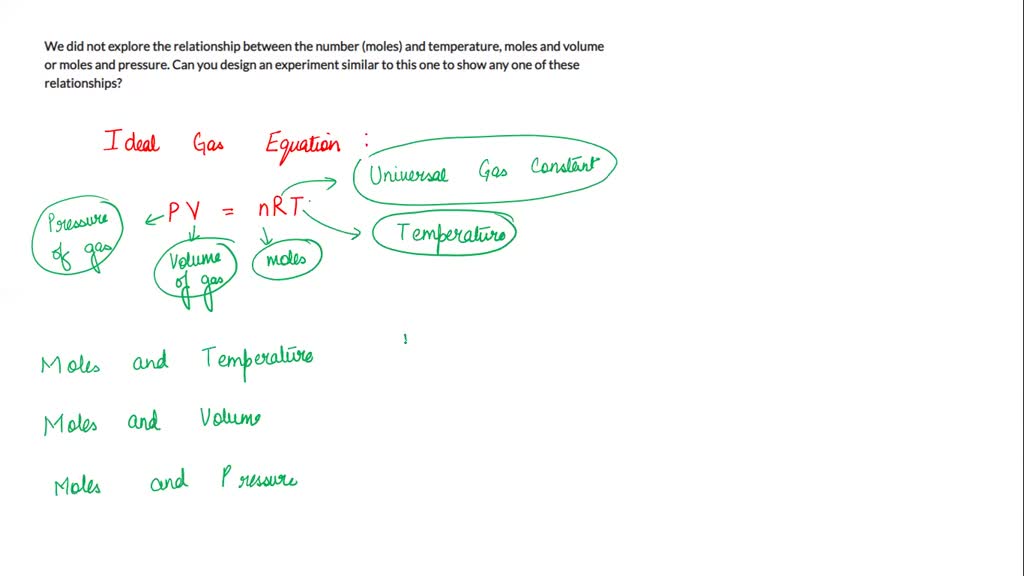 We did not explore the relationship between the number (moles) and temperature, moles and volume
or moles and pressure. Can you design an experiment similar to this one to show any one of these
relationships?
Ideal Gas Equation :
Universal Gas Constant
PV = nRT
Pressure
of gas
Temperature
Volume
of gas
moles
Moles and Temperature
Moles and Volume
Moles and Pressure